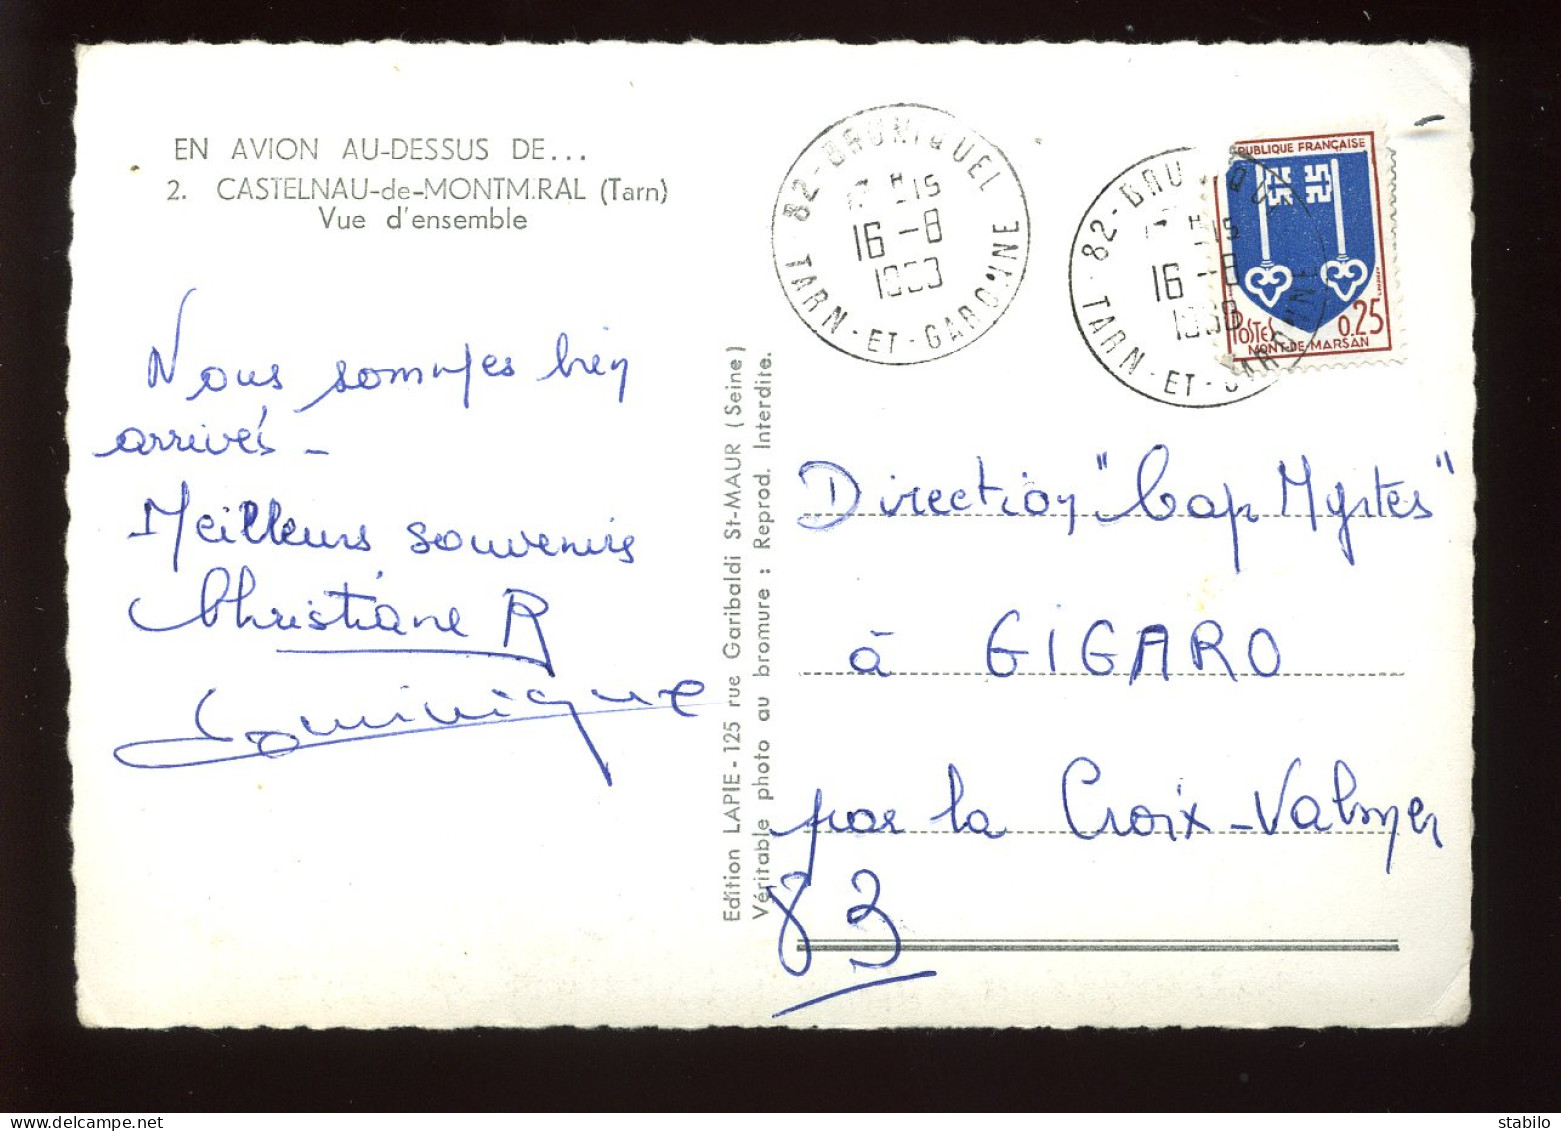 EN AVION AU-DESSUS DE...
2. CASTELNAU-de-MONTM.RAL (Tarn)
Vue d'ensemble
Nous sommes bien
arrivés -
Meilleurs souvenirs
Christiane R
Dominique
Edition LAPIE - 125 rue Garibaldi St-MAUR (Seine)
Véritable photo au bromure : Reprod. Interdite.
82-BRUNIQUEL
16 -8
TARN-ET-GARONNE
82-BRU
16 -8
TARN-ET-GARONNE
RÉPUBLIQUE FRANÇAISE
POSTES 0.25
MONT-DE-MARSAN
Direction "Cap Myrtes"
à GIGARO
par la Croix-Valmer
83
stabilo